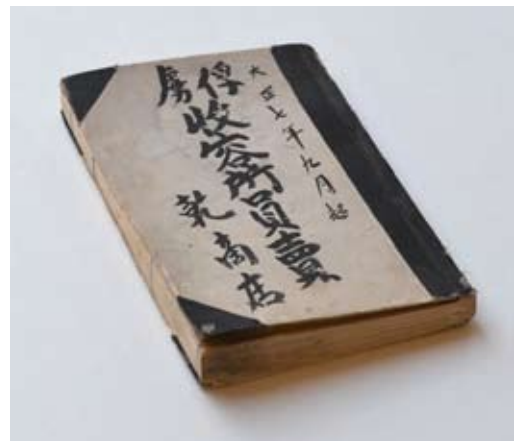 大正七年九月起
俘虜收容所員賣
乾商店